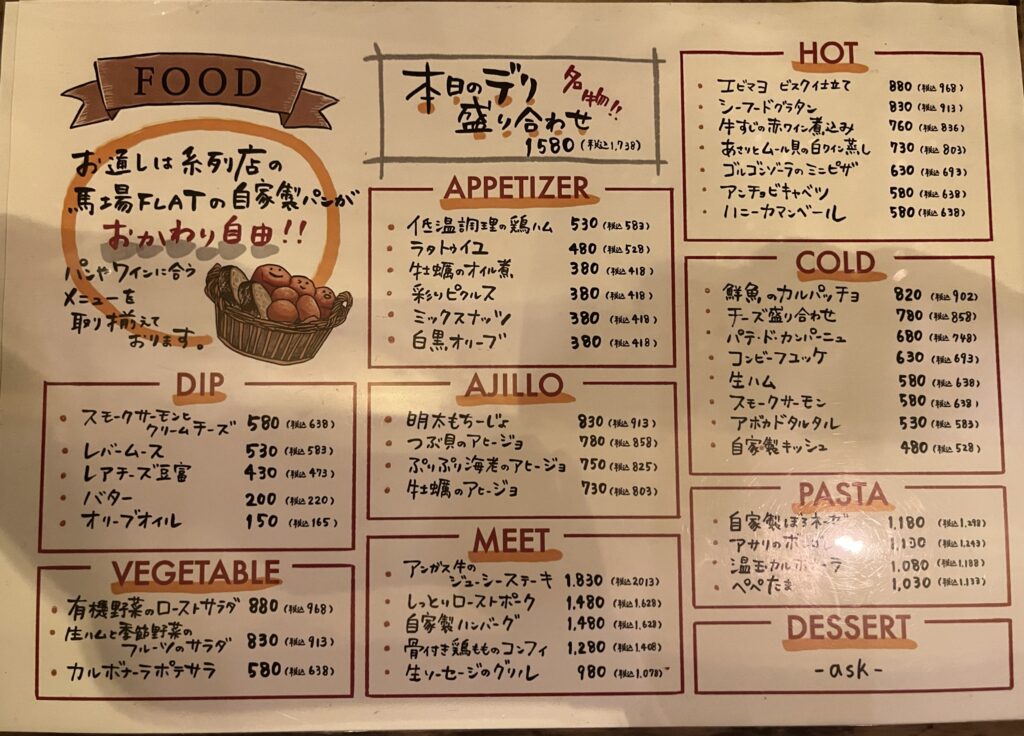 FOOD
お通しは系列店の
馬場FLATの自家製パンが
おかわり自由!!
パンやワインに合う
メニューを
取り揃えて
おります。
本日のデリ
盛り合わせ
名物!!
1580(税込1,738)
DIP
・スモークサーモンと
クリームチーズ 580(税込638)
・レバームース 530(税込583)
・レアチーズ豆富 430(税込473)
・バター 200(税込220)
・オリーブオイル 150(税込165)
VEGETABLE
・有機野菜のローストサラダ 880(税込968)
・生ハムと季節野菜の
フルーツのサラダ 830(税込913)
・カルボナーラポテサラ 580(税込638)
APPETIZER
・低温調理の鶏ハム 530(税込583)
・ラタトゥイユ 480(税込528)
・牡蠣のオイル煮 380(税込418)
・彩りピクルス 380(税込418)
・ミックスナッツ 380(税込418)
・白黒オリーブ 380(税込418)
AJILLO
・明太もちーじょ 830(税込913)
・つぶ貝のアヒージョ 780(税込858)
・ぷりぷり海老のアヒージョ 750(税込825)
・牡蠣のアヒージョ 730(税込803)
MEET
・アンガス牛の
ジューシーステーキ 1,830(税込2013)
・しっとりローストポーク 1,480(税込1,628)
・自家製ハンバーグ 1,480(税込1,628)
・骨付き鶏もものコンフィ 1,280(税込1,408)
・生ソーセージのグリル 980(税込1,078)
HOT
・エビマヨ ビスクイ仕立て 880(税込968)
・シーフードグラタン 830(税込913)
・牛すじの赤ワイン煮込み 760(税込836)
・あさりとムール貝の白ワイン蒸し 730(税込803)
・ゴルゴンゾーラのミニピザ 630(税込693)
・アンチョビキャベツ 580(税込638)
・ハニーカマンベール 580(税込638)
COLD
・鮮魚のカルパッチョ 820(税込902)
・チーズ盛り合わせ 780(税込858)
・パテ・ド・カンパーニュ 680(税込748)
・コンビーフユッケ 630(税込693)
・生ハム 580(税込638)
・スモークサーモン 580(税込638)
・アボカドタルタル 530(税込583)
・自家製キッシュ 480(税込528)
PASTA
・自家製ぼろネーゼ 1,180(税込1,298)
・アサリの 1,130(税込1,243)
・温玉カルボナーラ 1,080(税込1,188)
・ペペたま 1,030(税込1,133)
DESSERT
-ask-